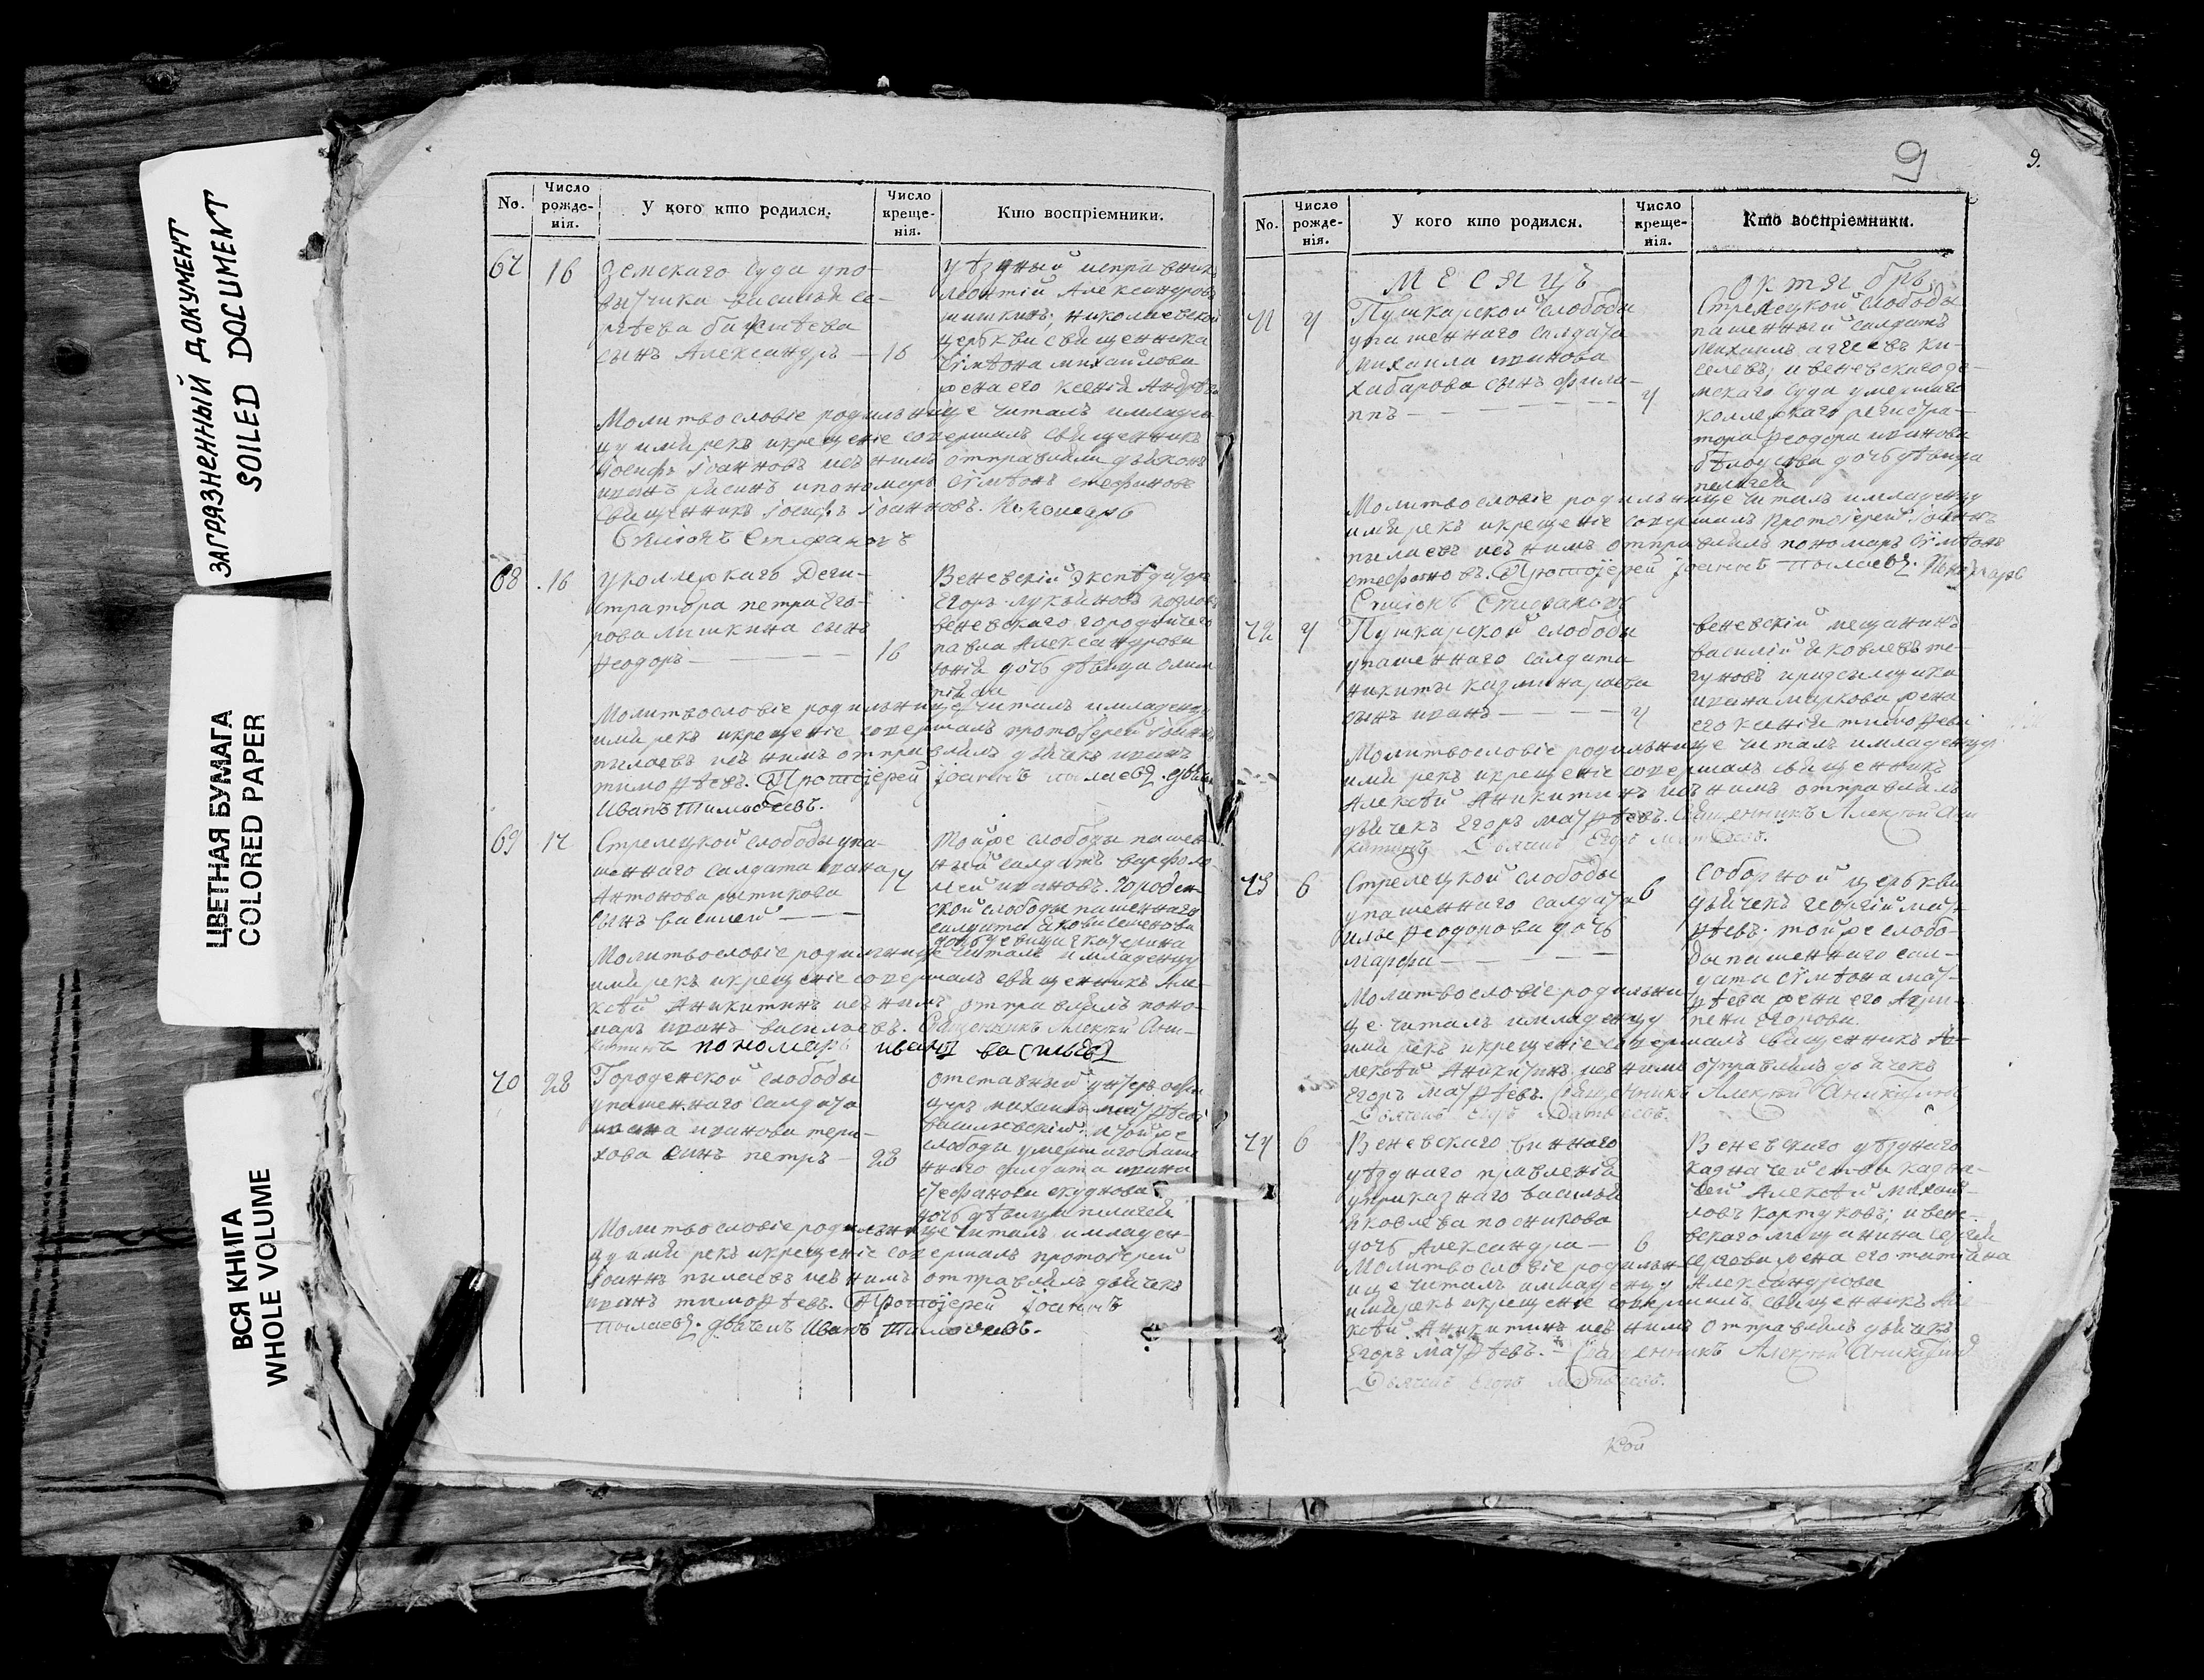 ЗАГРЯЗНЕННЫЙ ДОКУМЕНТ
SOILED DOCUMENT
ЦВЕТНАЯ БУМАГА
COLORED PAPER
ВСЯ КНИГА
WHOLE VOLUME
No. Число рожде-нія. У кого кто родился. Число креще-нія. Кто воспріемники.
67 16 Земскаго Суда упо-
сынъ Александръ — 16
уѣздный исправникъ
Леонтій Александровъ
шишкинъ; николаевской
церькви священника
Сімѣона михайлова
жена его ксенія Андрѣ
Молитвословіе родильнице читалъ имладен
цу имя рекъ икрещеніе совершалъ священникъ
Іосифъ Іоанновъ исъ нимъ отправляли дьяконъ
иванъ ипономарь Сімѣонъ стефановъ
Священникъ Іосифъ Іоанновъ. Пономарь
Сѵмеонъ Стефановъ
68 16 у коллежкаго Реги-
стратора петра Его-
рова лишкина сынъ
Ѳеодоръ — 16
Веневскій Экспѣдиторъ
Егоръ лукьяновъ козловъ
веневскаго городничего
павла Александрова
дочь дѣвица олим
піада
Молитвословіе родильнице читалъ имладенцу
имя рекъ икрещеніе совершалъ протоіерей Іоаннъ
пылаевъ исъ нимъ отправлялъ дьячекъ иванъ
тимоѳѣевъ. Протоіерей Іоаннъ пылаевъ. дьяч
Иванъ Тимоѳеевъ.
69 17 Стрелецкой слободы упа-
шеннаго салдата ивана 17
Антонова
сынъ василей —
Тойже слободы пашен
ный салдатъ варфоло
мей ивановъ. Городен
ской слободы пашеннаго
салдата якова семенова
дочь девица екатерина
Молитвословіе родильнице читалъ имладенцу
имя рекъ икрещеніе совершалъ священникъ Але-
ксѣй Аникитинъ исъ нимъ отправлялъ поно-
марь иванъ васильевъ. Священникъ Алексѣй Ани-
китинъ пономарь иванъ васильевъ
70 28 Городенской слободы
упашеннаго салдата
ивана иванова тере-
хова синъ петръ — 28
отставный унтеръ офи
церъ михаилъ матѳѣевъ
василевскій. и тойже
слободы умершаго паше
ннаго салдата ивана
стефанова скуднова
дочь дѣвица пелагея
Молитвословіе родильнице читалъ имладен-
цу имя рекъ икрещеніе совершалъ протоіерей
Іоаннъ пылаевъ исъ нимъ отправлялъ дьячекъ
иванъ тимоѳѣевъ. Протоіерей Іоаннъ
Пылаевъ. дьячекъ Иванъ Тимоѳеевъ.
9 9.
No. Число рожде-нія. У кого кто родился. Число креще-нія. Кто воспріемники.
МЕСЯЦЪ октябрь
71 4 Пушкарской слободы
упашеннаго салдата
михаила иванова
хабарова сынъ фили-
ппъ — 4
Стрелецкой слободы
пашенный салдатъ
михаилъ аггеевъ ки-
селевъ; ивеневскагозе-
мскаго суда умершаго
коллежкаго регистра-
тора Ѳеодора иванова
бѣлоусова дочь дѣвица
пелагея
Молитвословіе родильнице читалъ имладенцу
имя рекъ икрещеніе совершалъ протоіерей Іоаннъ
пылаевъ исъ нимъ отправлялъ пономарь Сімѣонъ
стефановъ. Протоіерей Іоаннъ Пылаевъ. Пономарь
Сѵмеонъ Стефановъ
72 4 Пушкарской слободы
упашеннаго салдата
никиты
сынъ иванъ — 4
веневскій мещанинъ
василій яковлевъ
ивана маркова жена
его ксенія тимоѳева
Молитвословіе родильнице читалъ имладенцу
имя рекъ икрещеніе совершалъ священникъ
Алексѣй Аникитинъ исъ нимъ отправлялъ
дьячекъ Егоръ матѳѣевъ. Священникъ Алексѣй Ани
китинъ Дьячекъ Егоръ Матвеевъ.
73 6 Стрелецкой слободы
упашеннаго салдата 6
ильи Ѳеодорова дочь
марфа —
Соборной церькви
дьячекъ георгій мат-
ѳѣевъ. тойже слобо-
ды пашеннаго сал-
дата сімѣона мат-
ѳѣева жена его Агри-
пена Егорова.
Молитвословіе родильни-
це читалъ имладенцу
имя рекъ икрещеніе совершалъ священникъ А-
лексѣй Аникитинъ исъ нимъ отправлялъ дьячекъ
Егоръ матѳѣевъ. Священникъ Алексѣй Аникитинъ
Дьячекъ Егоръ Матвеевъ.
74 6 Веневскаго виннаго
уѣзднаго правленія
уприказнаго василья
Яковлева посникова
дочь Александра — 6
Веневскаго уѣзднаго
казначейства казна-
чей Алексѣй михай-
ловъ картуковъ; ивене-
вскаго мещанина сергея
сергеева жена его татьяна
Александрова
Молитвословіе родильн
ице читалъ имладенцу
имя рекъ икрещеніе совершалъ священникъ Але
ксѣй Аникитинъ исъ нимъ отправлялъ дьячекъ
Егоръ матѳѣевъ. — Священникъ Алексѣй Аникитинъ
Дьячекъ Егоръ Матвеевъ.
кой